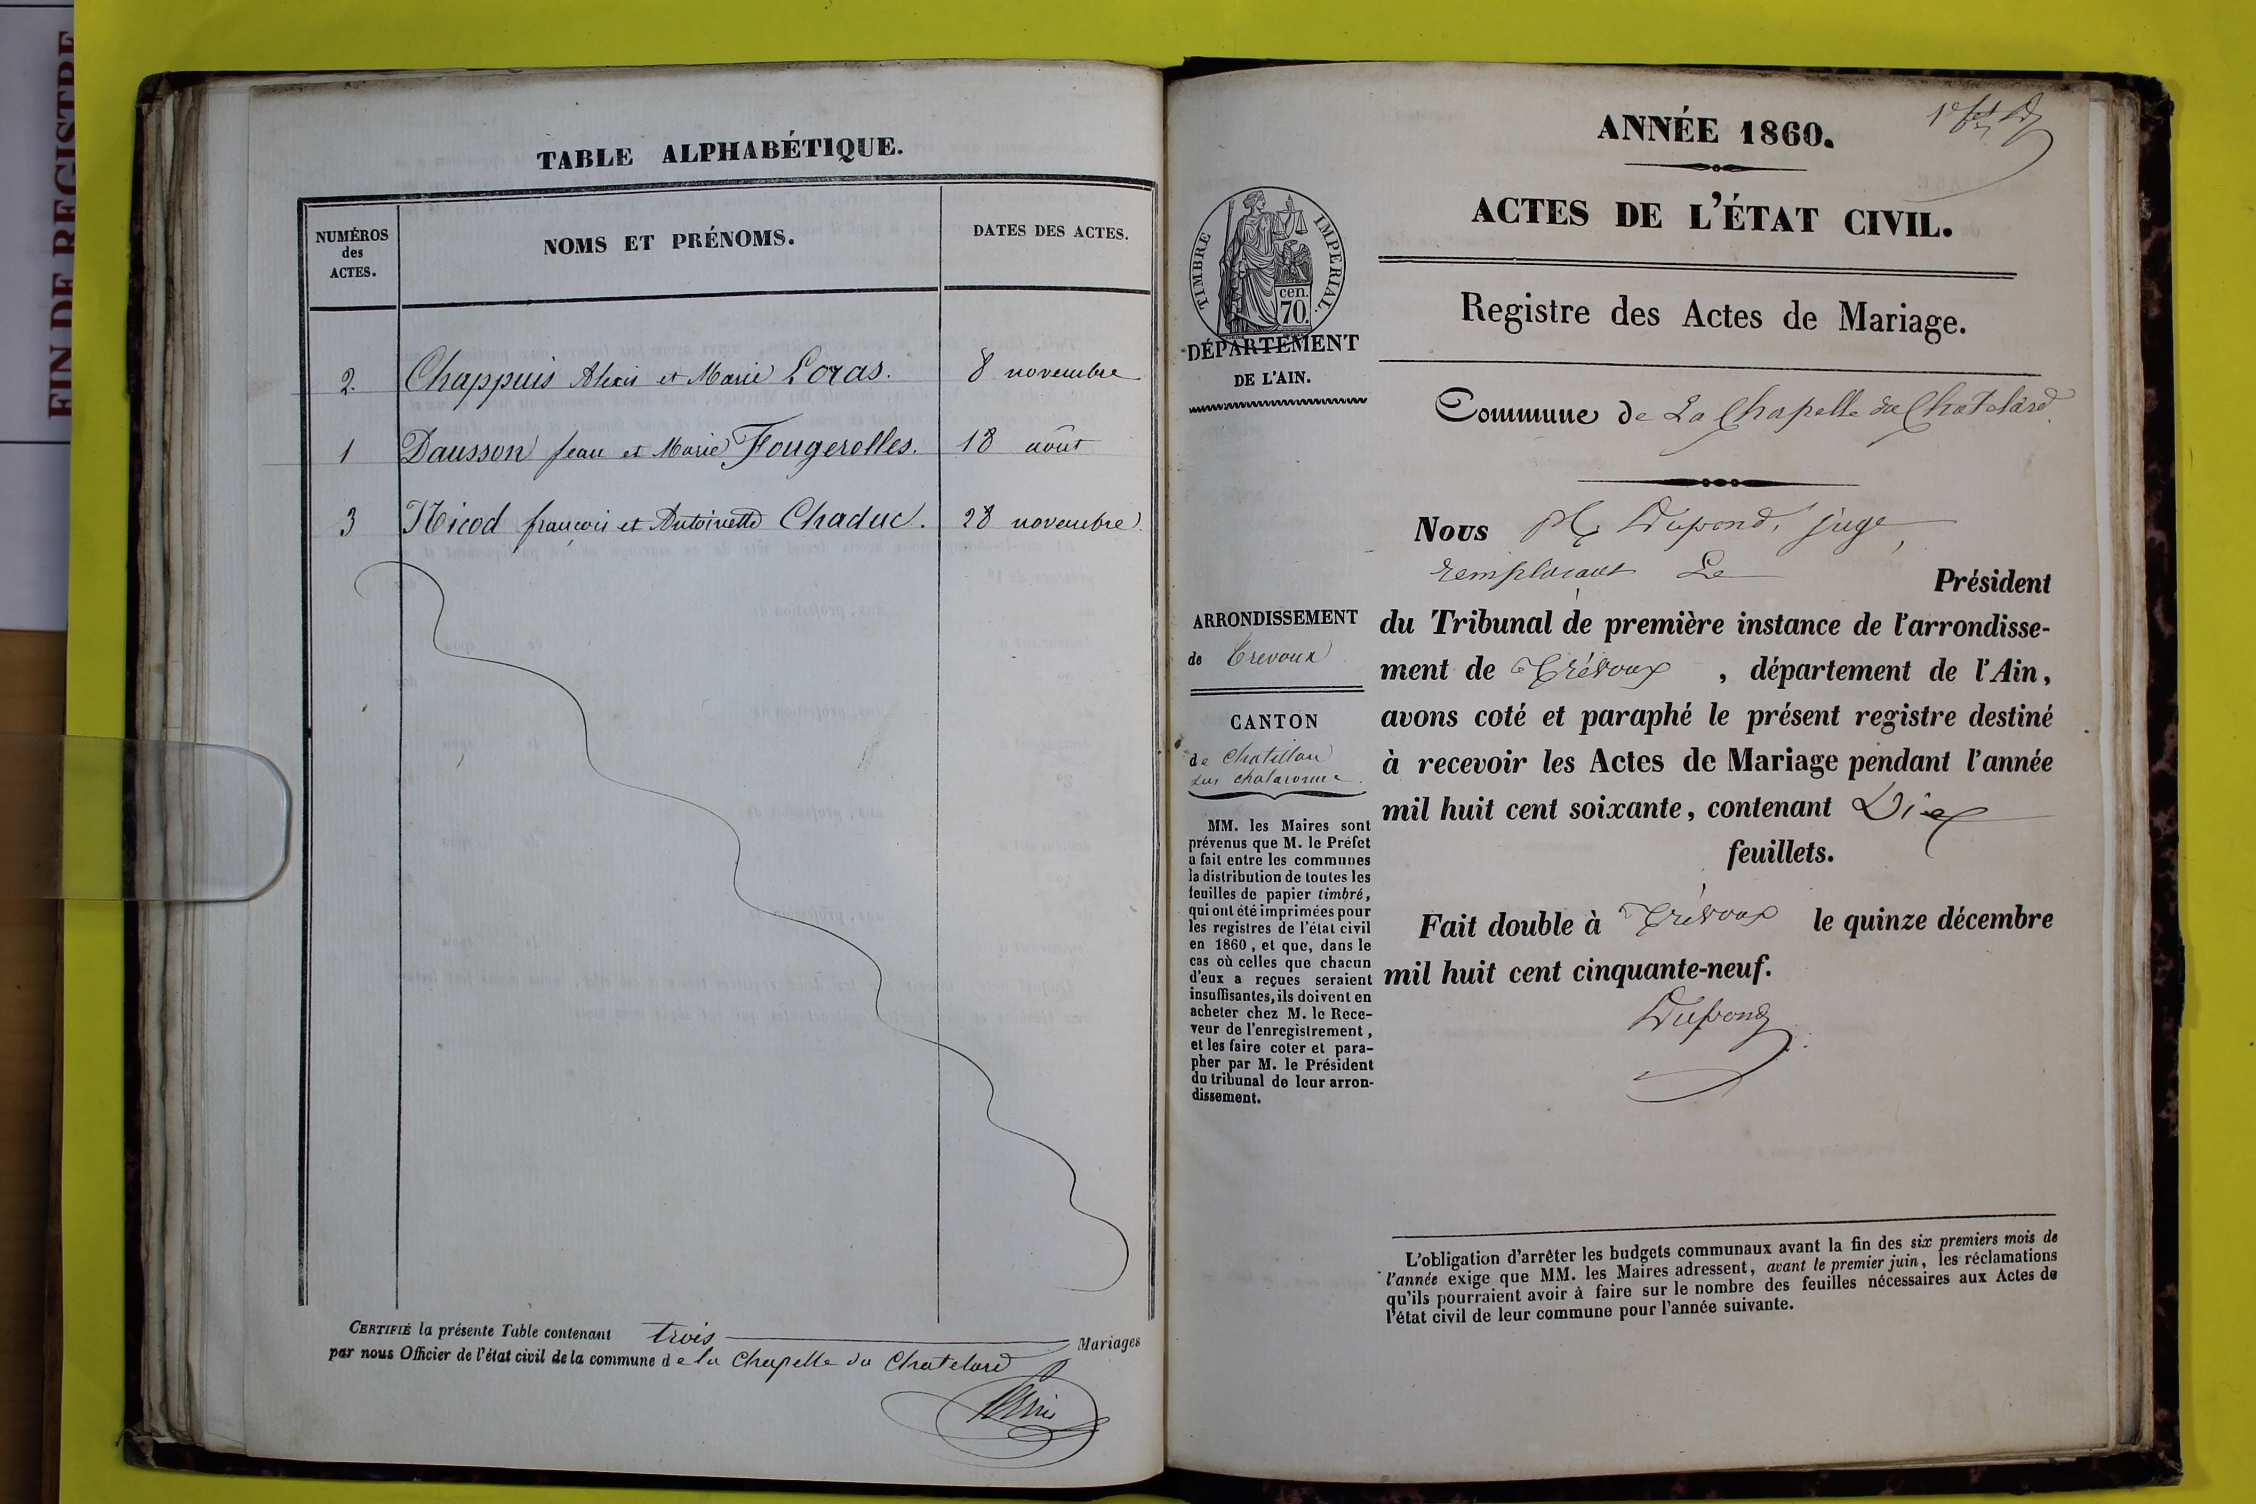 FIN DE REGISTRE
TABLE ALPHABÉTIQUE.
NUMÉROS
des
ACTES.
NOMS ET PRÉNOMS.
DATES DES ACTES.
2. Chappuis Alexis et Marie Loras. 8 novembre
1 Dausson Jean et Marie Fougerolles. 18 août
3 Nicod françois et Antoinette Chaduc. 28 novembre.
CERTIFIÉ la présente Table contenant trois Mariages
par nous Officier de l'état civil de la commune de la Chapelle du Chatelard
ANNÉE 1860.
ACTES DE L'ÉTAT CIVIL.
TIMBRE IMPÉRIAL.
cen.
70.
Registre des Actes de Mariage.
DÉPARTEMENT
DE L'AIN.
Commune de La Chapelle du Chatelard.
Nous Dupond, juge,
remplacant Le Président
ARRONDISSEMENT
de Trevoux
CANTON
de Chatillon
sur chalaronne.
MM. les Maires sont
prévenus que M. le Préfet
a fait entre les communes
la distribution de toutes les
feuilles de papier timbré,
qui ont été imprimées pour
les registres de l'état civil
en 1860, et que, dans le
cas où celles que chacun
d'eux a reçues seraient
insuffisantes, ils doivent en
acheter chez M. le Rece-
veur de l'enregistrement,
et les faire coter et para-
pher par M. le Président
du tribunal de leur arron-
dissement.
du Tribunal de première instance de l'arrondisse-
ment de Trévoux, département de l'Ain,
avons coté et paraphé le présent registre destiné
à recevoir les Actes de Mariage pendant l'année
mil huit cent soixante, contenant Dix
feuillets.
Fait double à Trévoux le quinze décembre
mil huit cent cinquante-neuf.
Dupond
L'obligation d'arrêter les budgets communaux avant la fin des six premiers mois de
l'année exige que MM. les Maires adressent, avant le premier juin, les réclamations
qu'ils pourraient avoir à faire sur le nombre des feuilles nécessaires aux Actes de
l'état civil de leur commune pour l'année suivante.